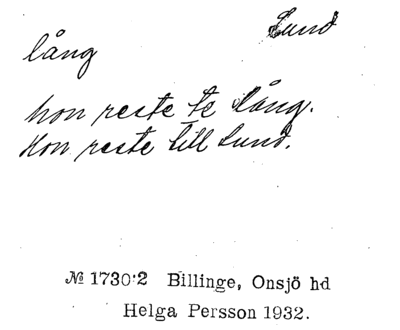 Lund
lång
hon reste te lång.
Hon reste till Lund.
№ 1730:2 Billinge, Onsjö hd
Helga Persson 1932.